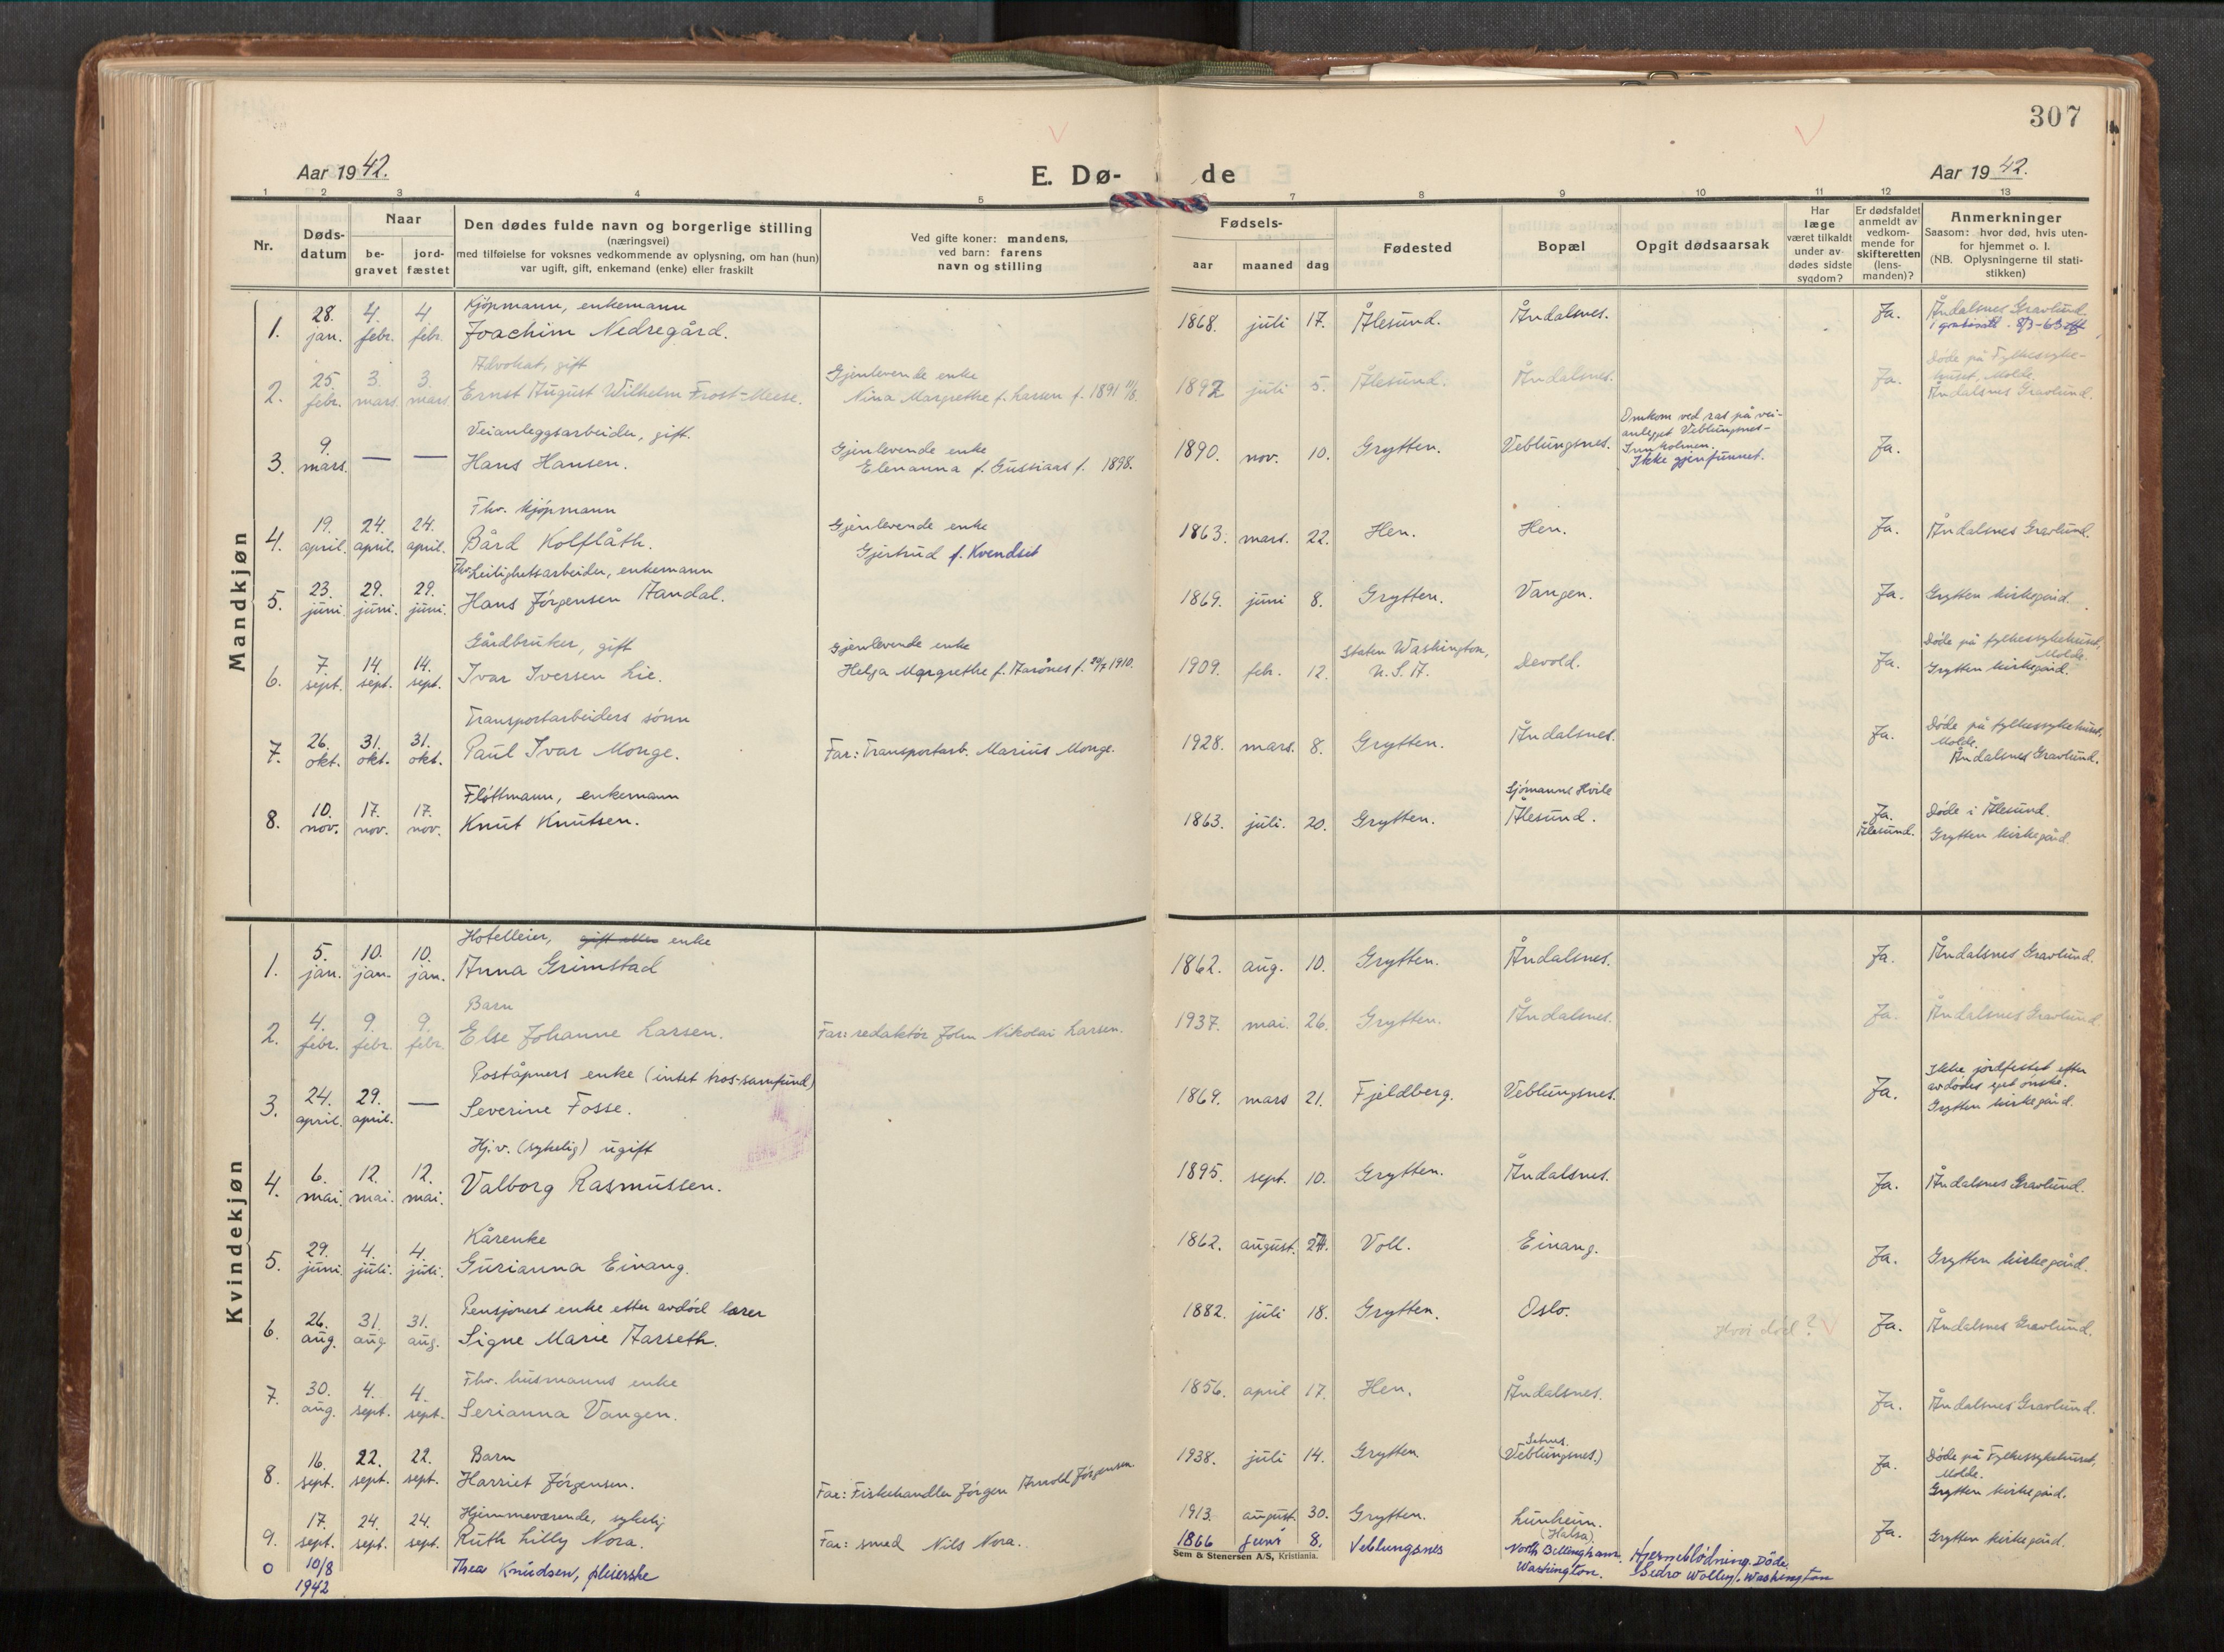 307
Aar 1942.
E. Dø-
de
Aar 1942.
1 2 3 4 5 6 7 8 9 10 11 12 13
Nr.
Døds-
datum
Naar
be-
gravet
jord-
fæstet
Den dødes fulde navn og borgerlige stilling
(næringsvei)
med tilføielse for voksnes vedkommende av oplysning, om han (hun)
var ugift, gift, enkemand (enke) eller fraskilt
Ved gifte koner: mandens,
ved barn: farens
navn og stilling
Fødsels-
aar maaned dag
Fødested
Bopæl
Opgit dødsaarsak
Har
læge
været tilkaldt
under av-
dødes sidste
sygdom?
Er dødsfaldet
anmeldt av
vedkom-
mende for
skifteretten
(lens-
manden)?
Anmerkninger
Saasom: hvor død, hvis uten-
for hjemmet o. l.
(NB. Oplysningerne til stati-
stikken)
Mandkjøn
Kjøpmann, enkemann
1. 28. jan. 4. febr. 4. febr. Joachim Nedregård. 1868. juli 17. Ålesund. Åndalsnes. Ja. Åndalsnes Gravlund.
Advokat, gift
2. 25. febr. 3. mars 3. mars Ernst August Wilhelm Frost-Meese. Gjenlevende enke
Nina Margrethe f. Larsen f. 1891 11/8. 1892 juli 5. Ålesund. Åndalsnes. Ja. Døde på Fylkessyke-
huset, Molde.
Åndalsnes Gravlund.
Veianleggsarbeider, gift.
3. 9. mars. — — Hans Hansen. Gjenlevende enke
Elenanna f. Gussiaas f. 1898. 1890. nov. 10. Grytten. Veblungsnes. Omkom ved ras på vei-
anlegget Veblungsnes-
Innholmen.
Ikke gjenfunnet. Ja.
Fhv. kjøpmann
4. 19. april. 24. april. 24. april. Bård Kolflåth. Gjenlevende enke
Gjertrud f. Kvendset 1863. mars. 22. Hen. Hen. Ja. Åndalsnes Gravlund.
Fhv. Leilighetsarbeider, enkemann
5. 23. juni. 29. juni. 29. juni. Hans Jørgensen Aandal. 1869. juni 8. Grytten. Vangen. Ja. Grytten kirkegård.
Gårdbruker, gift
6. 7. sept. 14. sept. 14. sept. Ivar Iversen Lie. Gjenlevende enke
Helga Margrethe f. Aarønes f. 20/7 1910. 1909. feb. 12. Staten Washington,
U. S. A. Devold. Ja. Døde på fylkessykehuset,
Molde.
Grytten kirkegård.
Transportarbeiders sønn
7. 26. okt. 31. okt. 31. okt. Paul Ivar Monge. Far: Transportarb. Marius Monge. 1928. mars. 8. Grytten. Åndalsnes. Ja. Døde på fylkessykehuset,
Molde.
Åndalsnes Gravlund.
Fløttmann, enkemann
8. 10. nov. 17. nov. 17. nov. Knut Knutsen. 1863. juli. 20. Grytten. Sjømanns Hvile
Ålesund. Ja.
Ålesund. Døde i Ålesund.
Grytten kirkegård.
Kvindekjøn
Hotelleier, gift eller enke
1. 5. jan. 10. jan. 10. jan. Anna Grimstad 1862. aug. 10. Grytten. Åndalsnes. Ja. Åndalsnes Gravlund.
Barn
2. 4. febr. 9. febr. 9. febr. Else Johanne Larsen. Far: redaktør John Nikolai Larsen. 1937. mai. 26. Grytten. Åndalsnes. Ja. Åndalsnes Gravlund.
Poståpners enke (intet tros-samfund)
3. 24. april. 29. april. — Severine Fosse. 1869. mars 21. Fjeldberg. Veblungsnes. Ja. Ikke jordfestet efter
avdødes eget ønske.
Grytten kirkegård.
Hj.v. (sykelig) ugift
4. 6. mai. 12. mai. 12. mai. Valborg Rasmussen. 1895. sept. 10. Grytten. Åndalsnes. Ja. Åndalsnes Gravlund.
Kårenke
5. 29. juni. 4. juli. 4. juli. Gurianna Einang. 1862. august. 24. Voll. Einang. Ja. Grytten kirkegård.
Pensjonert enke etter avdød lærer
6. 26. aug. 31. aug 31. aug. Signe Marie Aarseth. 1882. juli 18. Grytten. Oslo. Hvor død? Ja. Åndalsnes Gravlund.
Fhv. husmanns enke
7. 30. aug. 4. sept. 4. sept. Serianna Vangen. 1856. april 17. Hen. Åndalsnes. Ja. Åndalsnes Gravlund.
Barn
8. 16. sept. 22. sept. 22. sept. Harriet Jørgensen. Far: Fiskehandler Jørgen Arnold Jørgensen. 1938. juli 14. Grytten Setnes
(Veblungsnes.) Ja. Døde på Fylkessykehuset,
Molde.
Grytten kirkegård.
Hjemmeværende, sykelig
9. 17. sept. 24. sept. 24. sept. Ruth Lilly Nora. Far: smed Nils Nora. 1913. august. 30. Grytten. Lunheim.
(Halsa) Ja. Grytten kirkegård.
0 10/8 1942 Thea Knudsen, pleierske 1866 juni 8. Veblungsnes North Bellingham.
Washington. Hjerneblødning. Døde
Sedro Wolley, Washington
Sem & Stenersen A/S, Kristiania.